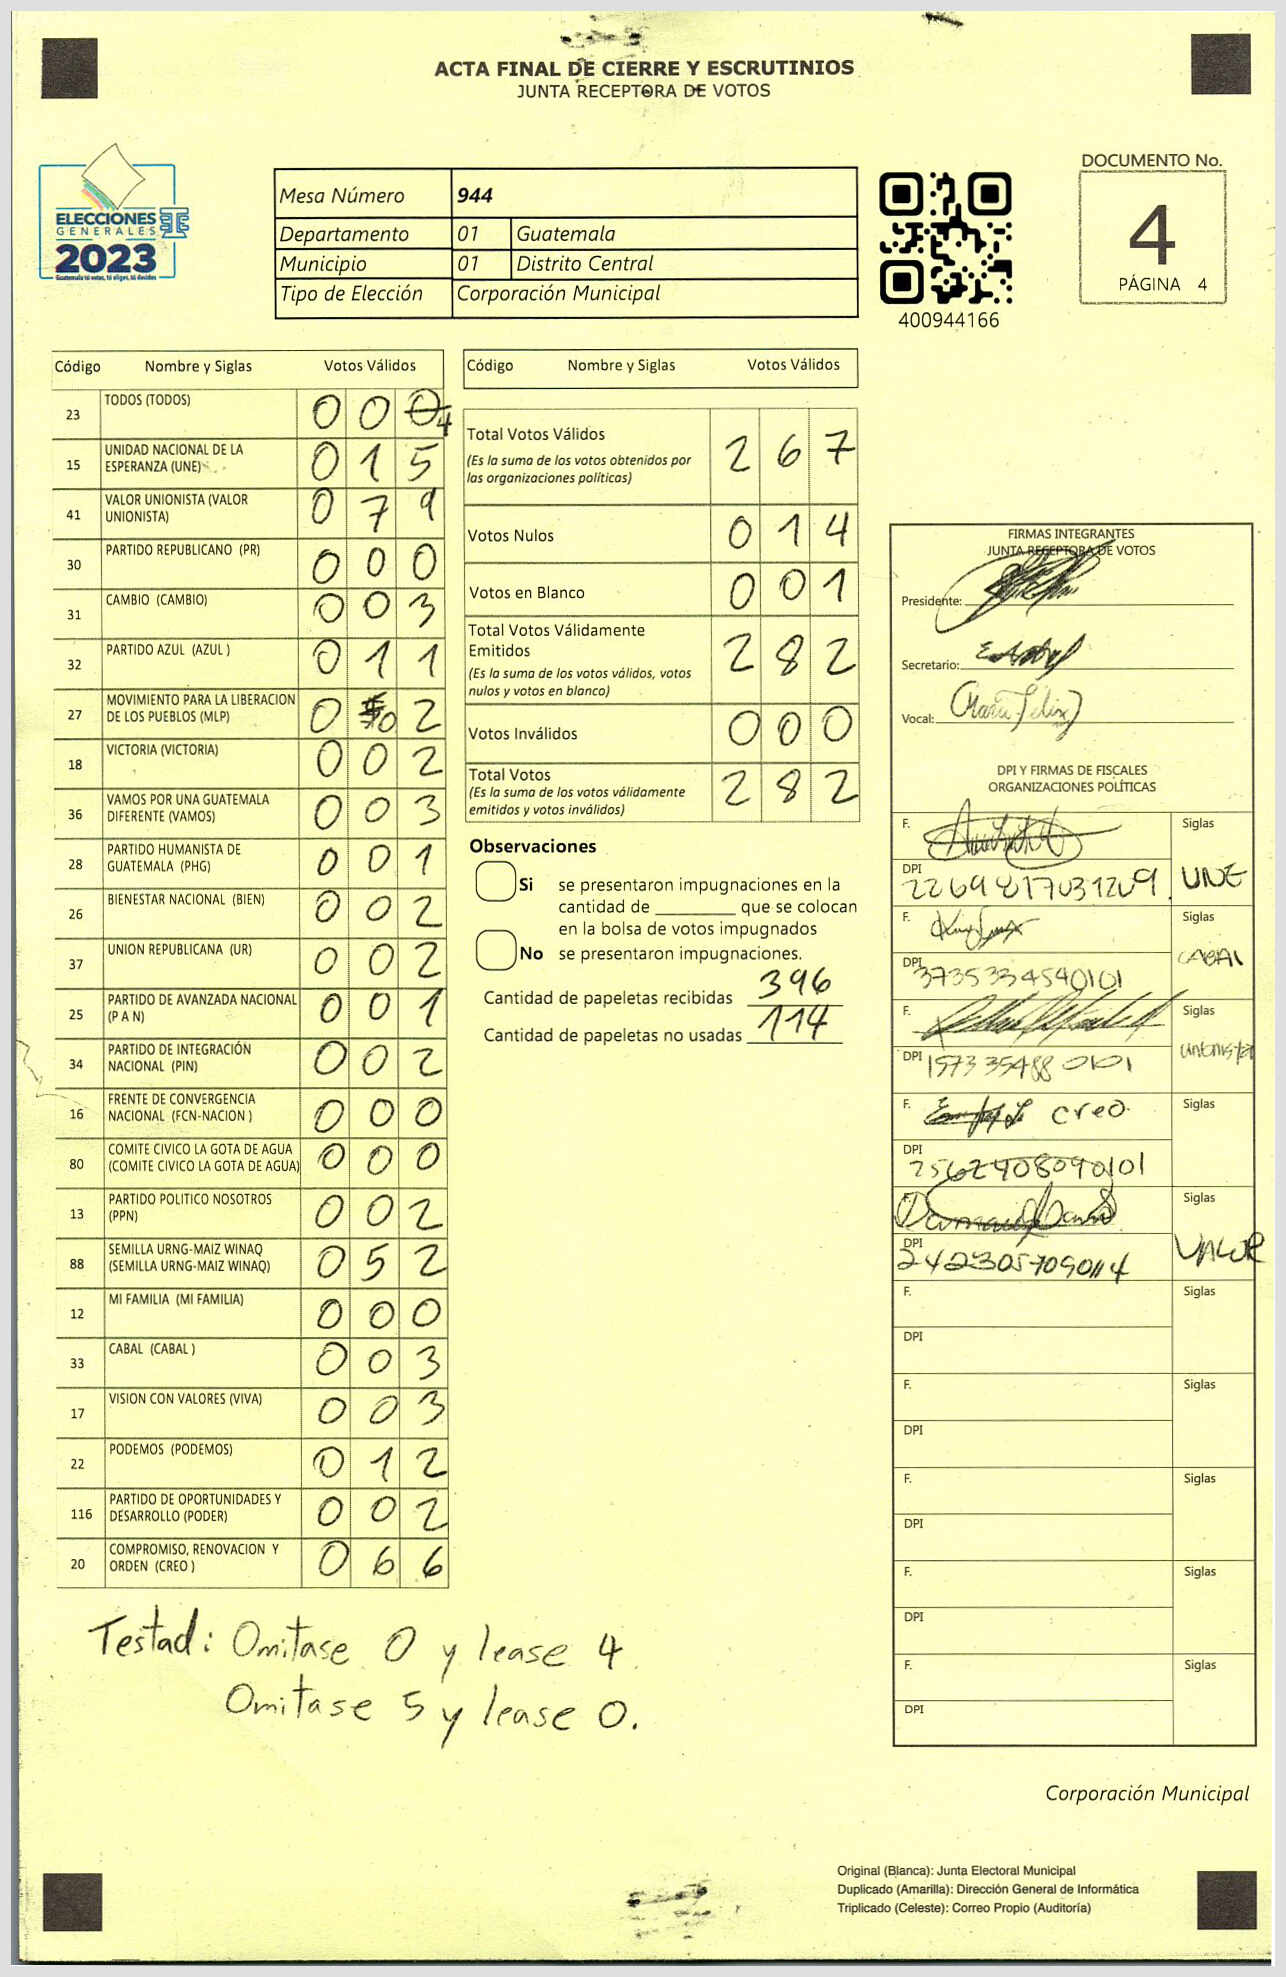 ACTA FINAL DE CIERRE Y ESCRUTINIOS
JUNTA RECEPTORA DE VOTOS
ELECCIONES
GENERALES
2023
Guatemala tú votas, tú eliges, tú decides
Mesa Número 944
Departamento 01 Guatemala
Municipio 01 Distrito Central
Tipo de Elección Corporación Municipal
400944166
DOCUMENTO No.
4
PÁGINA 4
Código Nombre y Siglas Votos Válidos
23 TODOS (TODOS) 0 0 0 4
15 UNIDAD NACIONAL DE LA ESPERANZA (UNE) 0 1 5
41 VALOR UNIONISTA (VALOR UNIONISTA) 0 7 9
30 PARTIDO REPUBLICANO (PR) 0 0 0
31 CAMBIO (CAMBIO) 0 0 3
32 PARTIDO AZUL (AZUL ) 0 1 1
27 MOVIMIENTO PARA LA LIBERACION DE LOS PUEBLOS (MLP) 0 5 0 2
18 VICTORIA (VICTORIA) 0 0 2
36 VAMOS POR UNA GUATEMALA DIFERENTE (VAMOS) 0 0 3
28 PARTIDO HUMANISTA DE GUATEMALA (PHG) 0 0 1
26 BIENESTAR NACIONAL (BIEN) 0 0 2
37 UNION REPUBLICANA (UR) 0 0 2
25 PARTIDO DE AVANZADA NACIONAL (P A N) 0 0 1
34 PARTIDO DE INTEGRACIÓN NACIONAL (PIN) 0 0 2
16 FRENTE DE CONVERGENCIA NACIONAL (FCN-NACION ) 0 0 0
80 COMITE CIVICO LA GOTA DE AGUA (COMITE CIVICO LA GOTA DE AGUA) 0 0 0
13 PARTIDO POLITICO NOSOTROS (PPN) 0 0 2
88 SEMILLA URNG-MAIZ WINAQ (SEMILLA URNG-MAIZ WINAQ) 0 5 2
12 MI FAMILIA (MI FAMILIA) 0 0 0
33 CABAL (CABAL ) 0 0 3
17 VISION CON VALORES (VIVA) 0 0 3
22 PODEMOS (PODEMOS) 0 1 2
116 PARTIDO DE OPORTUNIDADES Y DESARROLLO (PODER) 0 0 2
20 COMPROMISO, RENOVACION Y ORDEN (CREO ) 0 6 6
Testad: Omitase 0 y lease 4
Omitase 5 y lease 0.
Código Nombre y Siglas Votos Válidos
Total Votos Válidos 2 6 7
(Es la suma de los votos obtenidos por
las organizaciones políticas)
Votos Nulos 0 1 4
Votos en Blanco 0 0 1
Total Votos Válidamente
Emitidos 2 8 2
(Es la suma de los votos válidos, votos
nulos y votos en blanco)
Votos Inválidos 0 0 0
Total Votos 2 8 2
(Es la suma de los votos válidamente
emitidos y votos inválidos)
Observaciones
Si se presentaron impugnaciones en la
cantidad de ________ que se colocan
en la bolsa de votos impugnados
No se presentaron impugnaciones.
Cantidad de papeletas recibidas 396
Cantidad de papeletas no usadas 114
FIRMAS INTEGRANTES
JUNTA RECEPTORA DE VOTOS
Presidente:
Secretario:
Vocal: Maria Felix
DPI Y FIRMAS DE FISCALES
ORGANIZACIONES POLÍTICAS
F. Siglas
DPI 2269817031209. UNE
F. Siglas
DPI 3735334540101 CABAL
F. Siglas
DPI 1573354880101 unionista
F. creo Siglas
DPI 2562408090101
F. Siglas
DPI 2423057090114 VALOR
F. Siglas
DPI
F. Siglas
DPI
F. Siglas
DPI
F. Siglas
DPI
F. Siglas
DPI
Corporación Municipal
Original (Blanca): Junta Electoral Municipal
Duplicado (Amarilla): Dirección General de Informática
Triplicado (Celeste): Correo Propio (Auditoría)